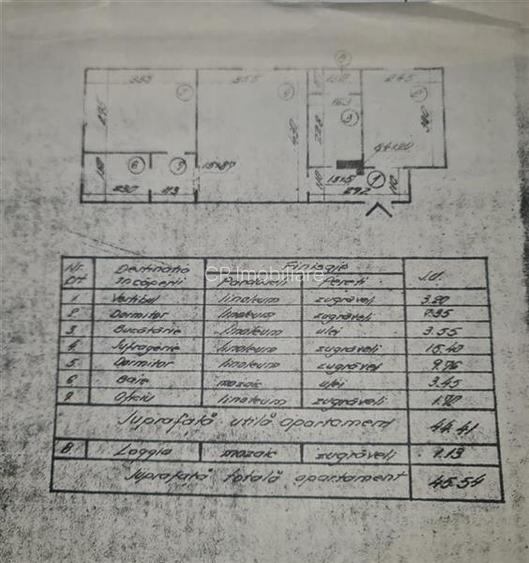 353
355
150
245
163
295
420
222
230
113
292
Nr. Crt Destinația Încăperii Finisaje S.U.
Pardoseli Pereți
CP Imobiliare
1 Vestibul linoleum zugrăveli 3.20
2 Dormitor linoleum zugrăveli 7.35
3 Bucătărie linoleum ulei 3.55
4 Sufragerie linoleum zugrăveli 15.40
5 Dormitor linoleum zugrăvel 9.76
6 Baie mozaic ulei 3.45
7 Oficiu linoleum zugrăveli 1.70
Suprafață utilă apartament 44.41
8 Loggia mozaic zugrăveli 1.13
Suprafață totală apartament 45.54